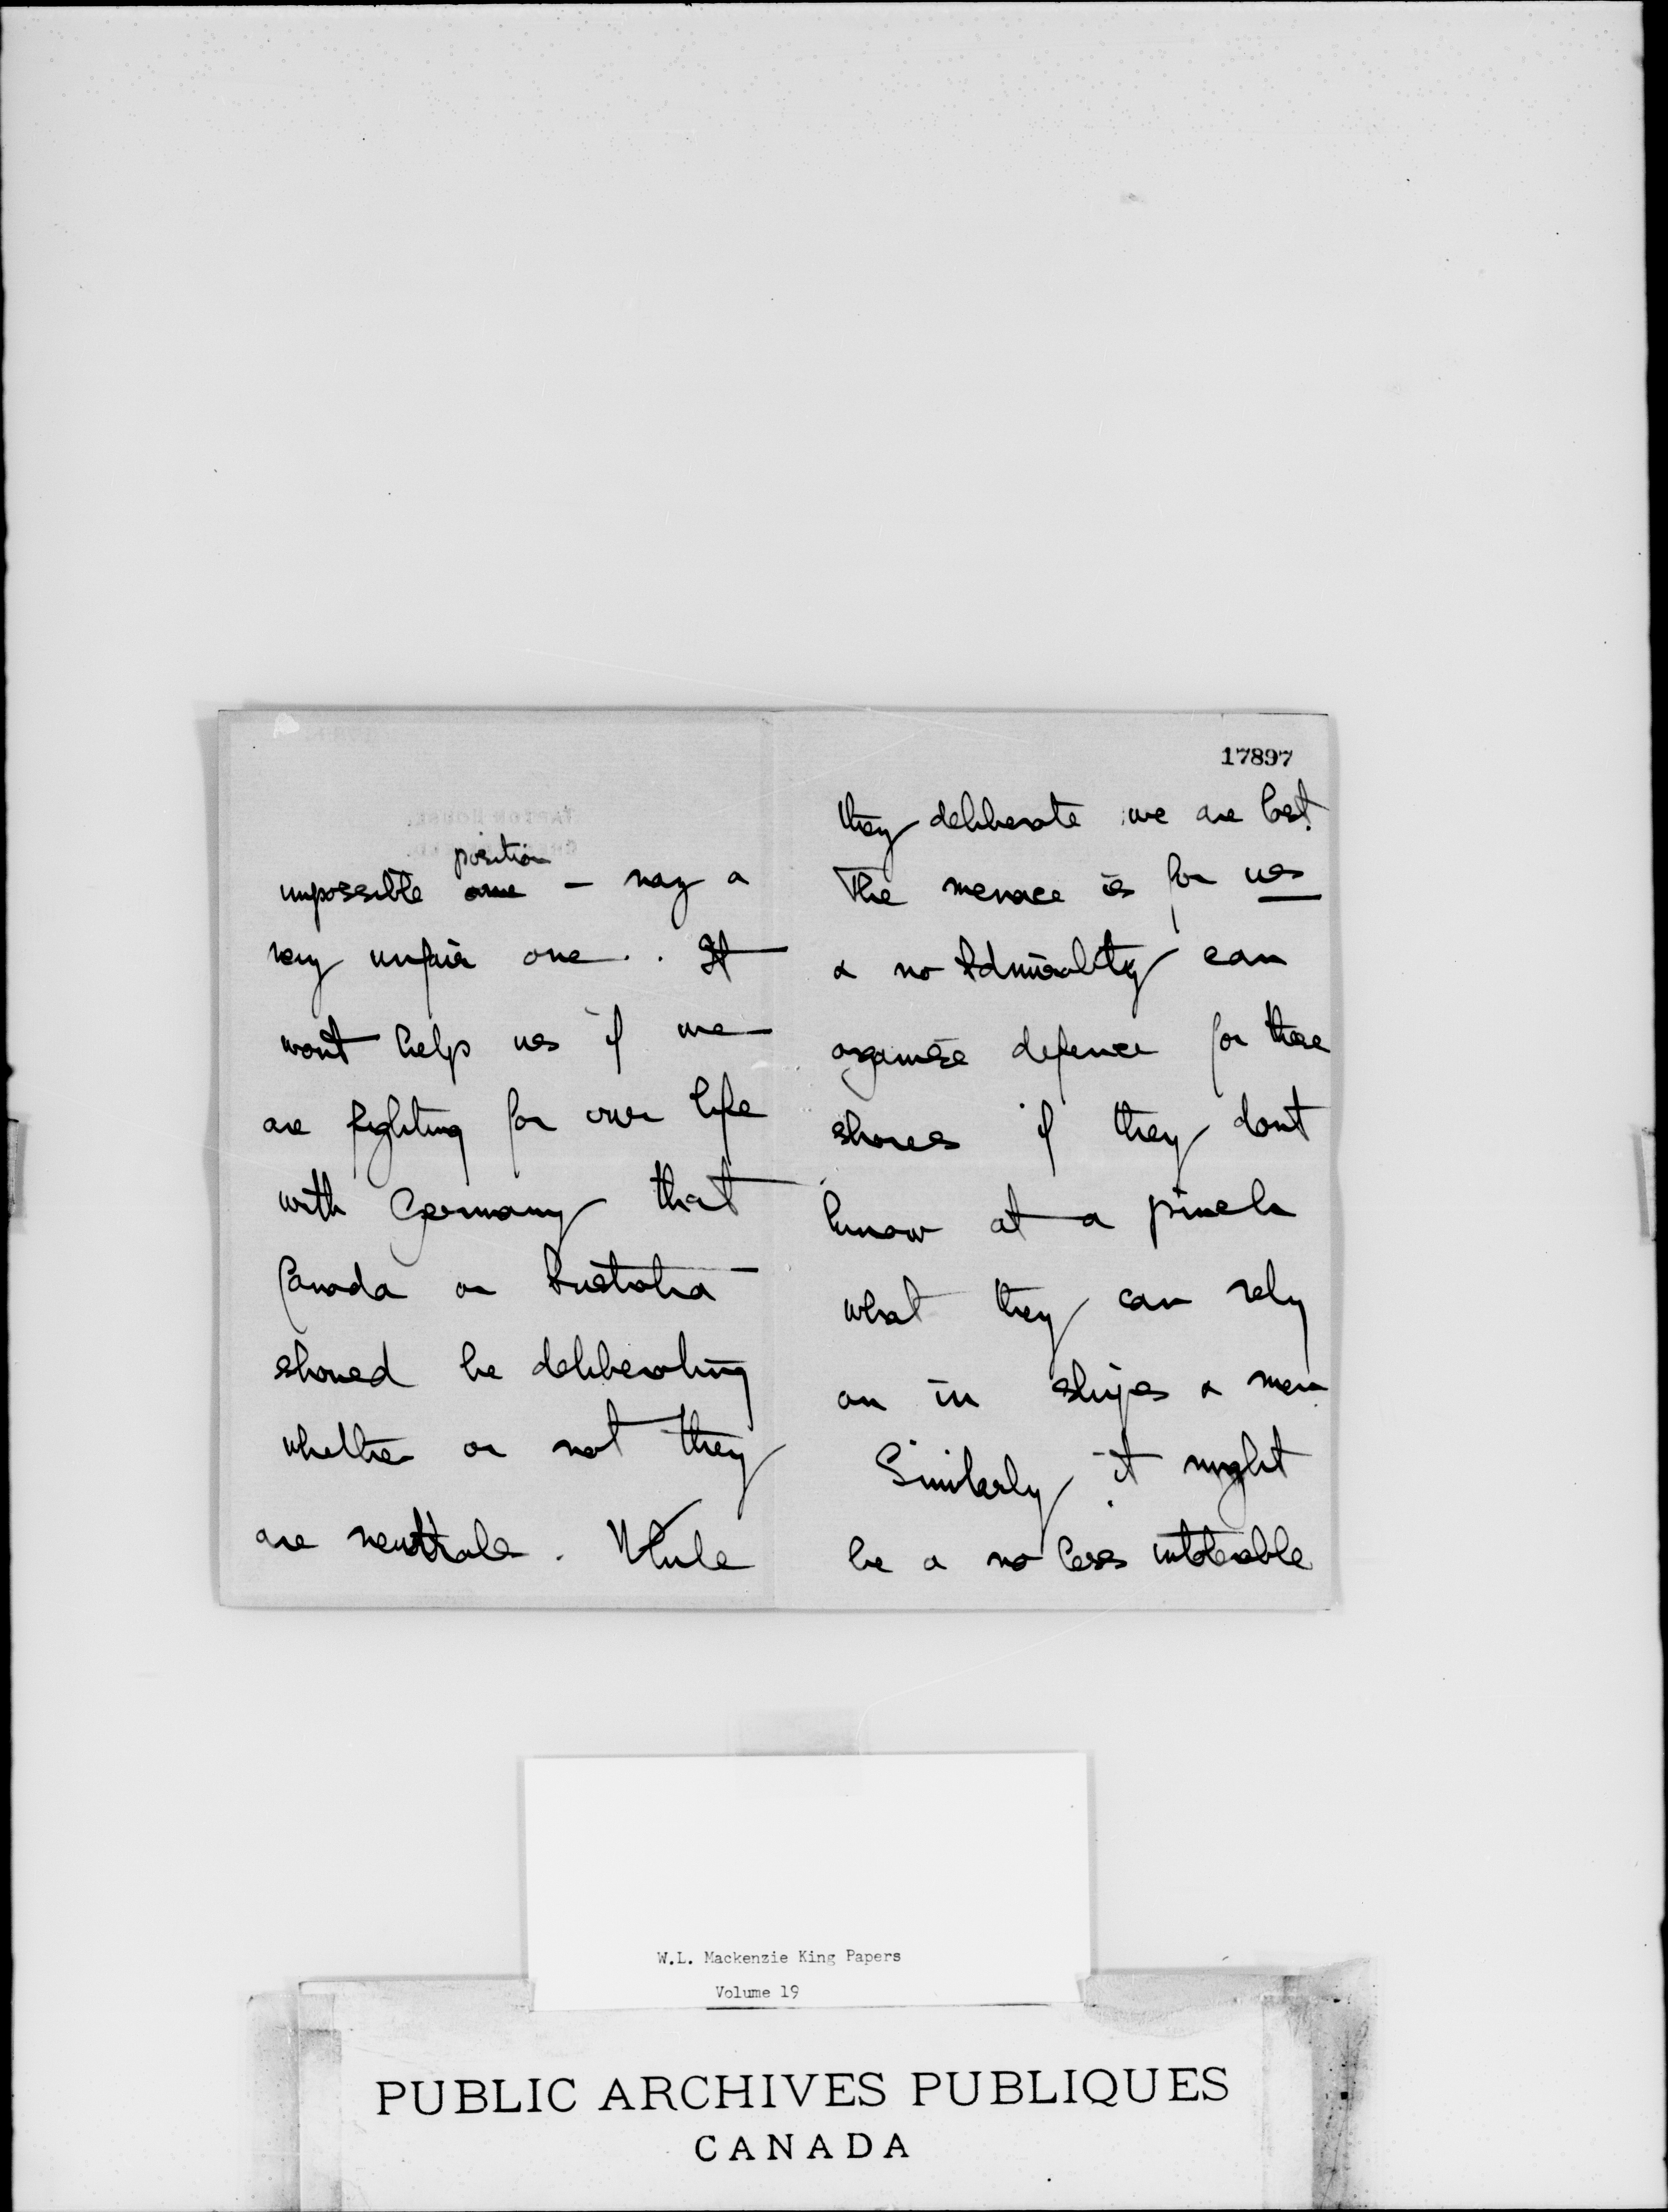 position
impossible one — nay a
very unfair one . . It
wont help us if we
are fighting for our life
with Germany that
Canada or Australia
should be deliberating
whether or not they
are neutrals . While
17897
they deliberate we are lost.
The menace is for us
& no Admiralty can
organise defence for these
shores if they dont
know at a pinch
what they can rely
on in ships & men.
Similarly it might
be a no less intolerable
W.L. Mackenzie King Papers
Volume 19
PUBLIC ARCHIVES PUBLIQUES
CANADA